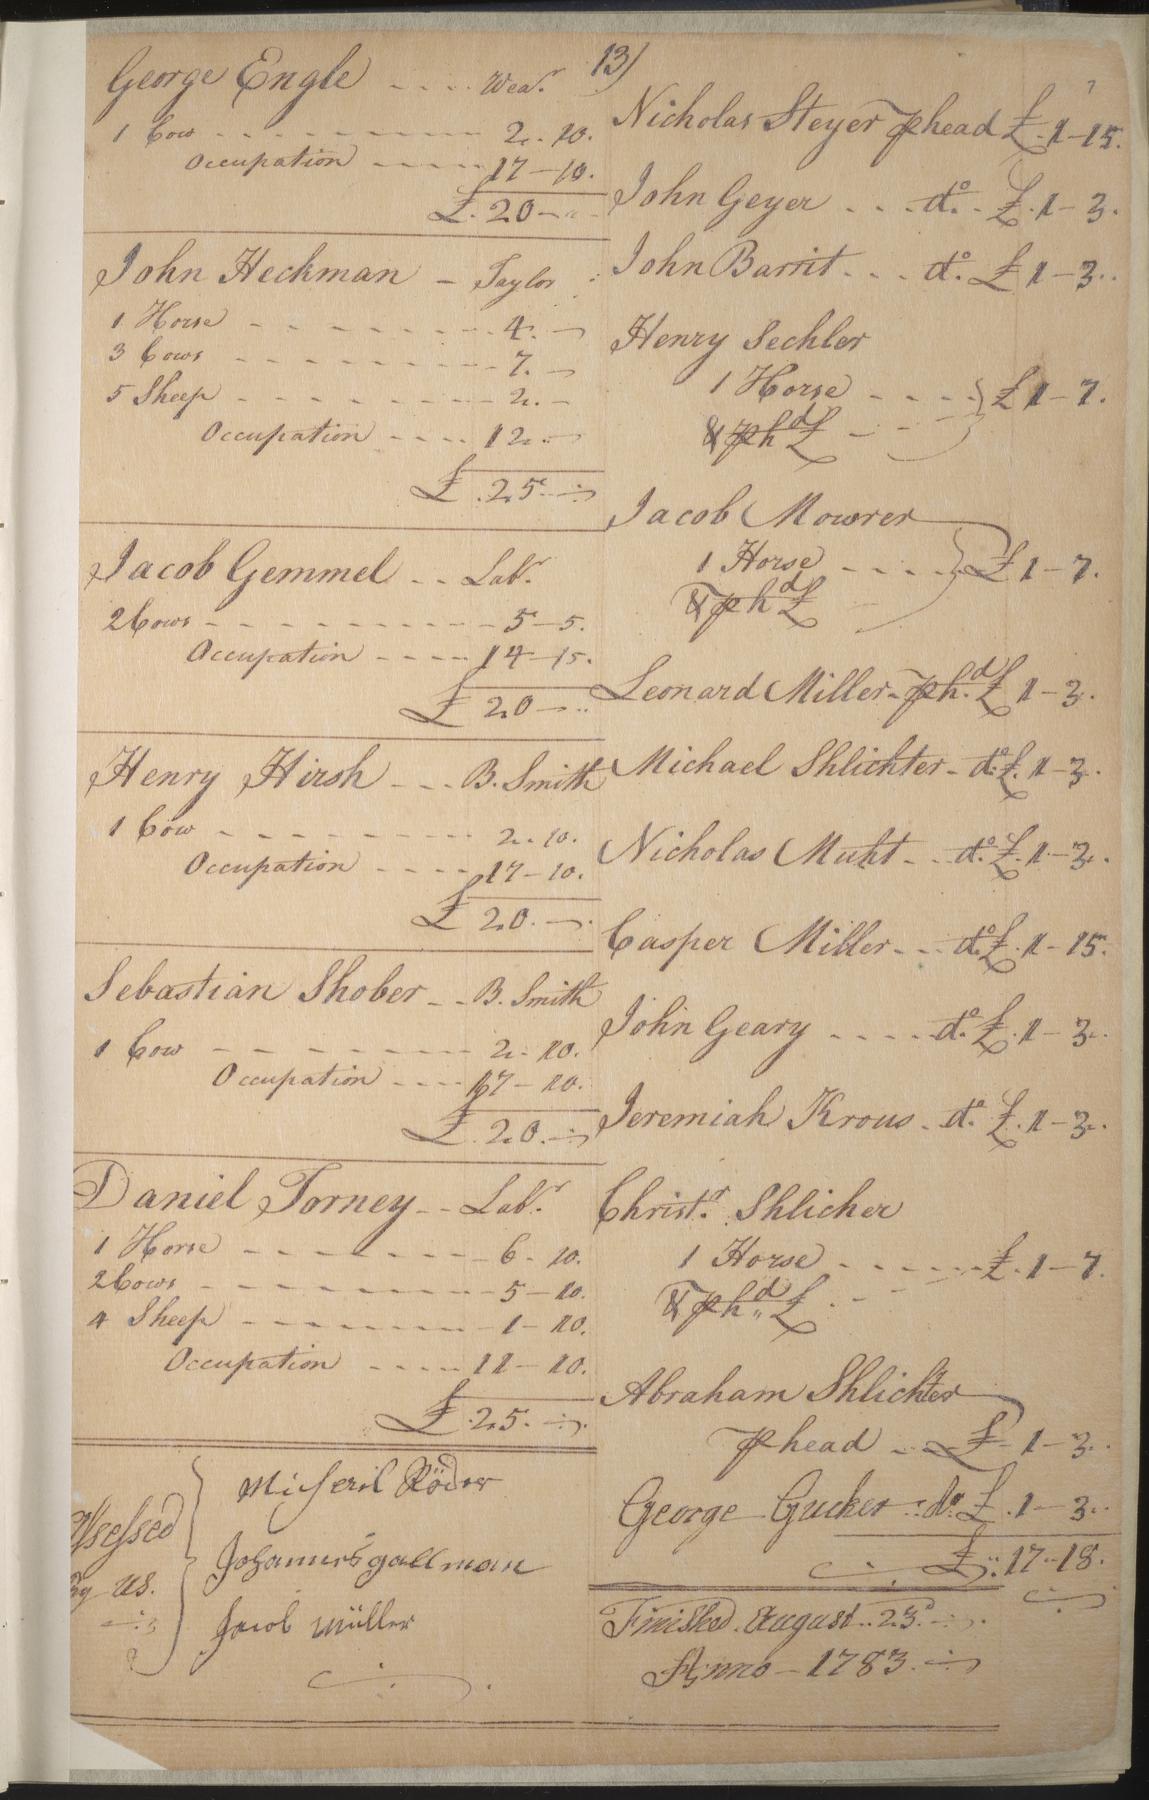 13)
George Engle - - - . Wear.
1 Cow - - - - - - - - - 2 .. 10.
Occupation - - - - - 17 - 10.
£. 20 - ..
John Heckman - Taylor
1 Horse - - - - - - - - 4. -
3 Cows - - - - - - - - 7. -
5 Sheep - - - - - - - - 2. -
Occupation - - - - 12. -
£. 25. -
Jacob Gemmel - - Labr.
2 Cows - - - - - - - - 5 - 5.
Occupation - - - - 14 - 15.
£ 20 - ..
Henry Hirsh - - - B. Smith
1 Cow - - - - - - - - 2 .. 10.
Occupation - - - - 17 - 10.
£ 20. -
Sebastian Shober - - B. Smith
1 Cow - - - - - - - - 2 .. 10.
Occupation - - - - 17 - 10.
£. 20. -
Daniel Torney - - Labr.
1 Horse - - - - - - - 6 - 10.
2 Cows - - - - - - - - 5 - 10.
4 Sheep - - - - - - - 1 - 10.
Occupation - - - - 11 - 10.
£. 25. -
Assessed
By us.
Michael Röder
Johannes gallman
Jacob Müller
Nicholas Steyer P head £. 1 - 15.
John Geyer - - - do. - £. 1 - 3.
John Barrit - - - do. £ 1 - 3.
Henry Sechler
1 Horse - - - - } £ 1 - 7.
& P hd £ - - -
Jacob Mowrer
1 Horse - - - - } £ 1 - 7.
& P hd £
Leonard Miller - P hd. £ 1 - 3.
Michael Shlichter - do. £. 1 - 3.
Nicholas Muht - - do. £. 1 - 3.
Casper Miller - - do. £. 1 - 15.
John Geary - - - - do. £. 1 - 3.
Jeremiah Krous - do. £. 1 - 3.
Christr. Shlicher
1 Horse - - - - - £. 1 - 7.
& P hd £ . - -
Abraham Shlichter
P head - - £ - 1 - 3.
George Gucker - do £. 1 - 3.
£ .. 17 - 18.
Finished. August .. 23d.
Anno - 1783.